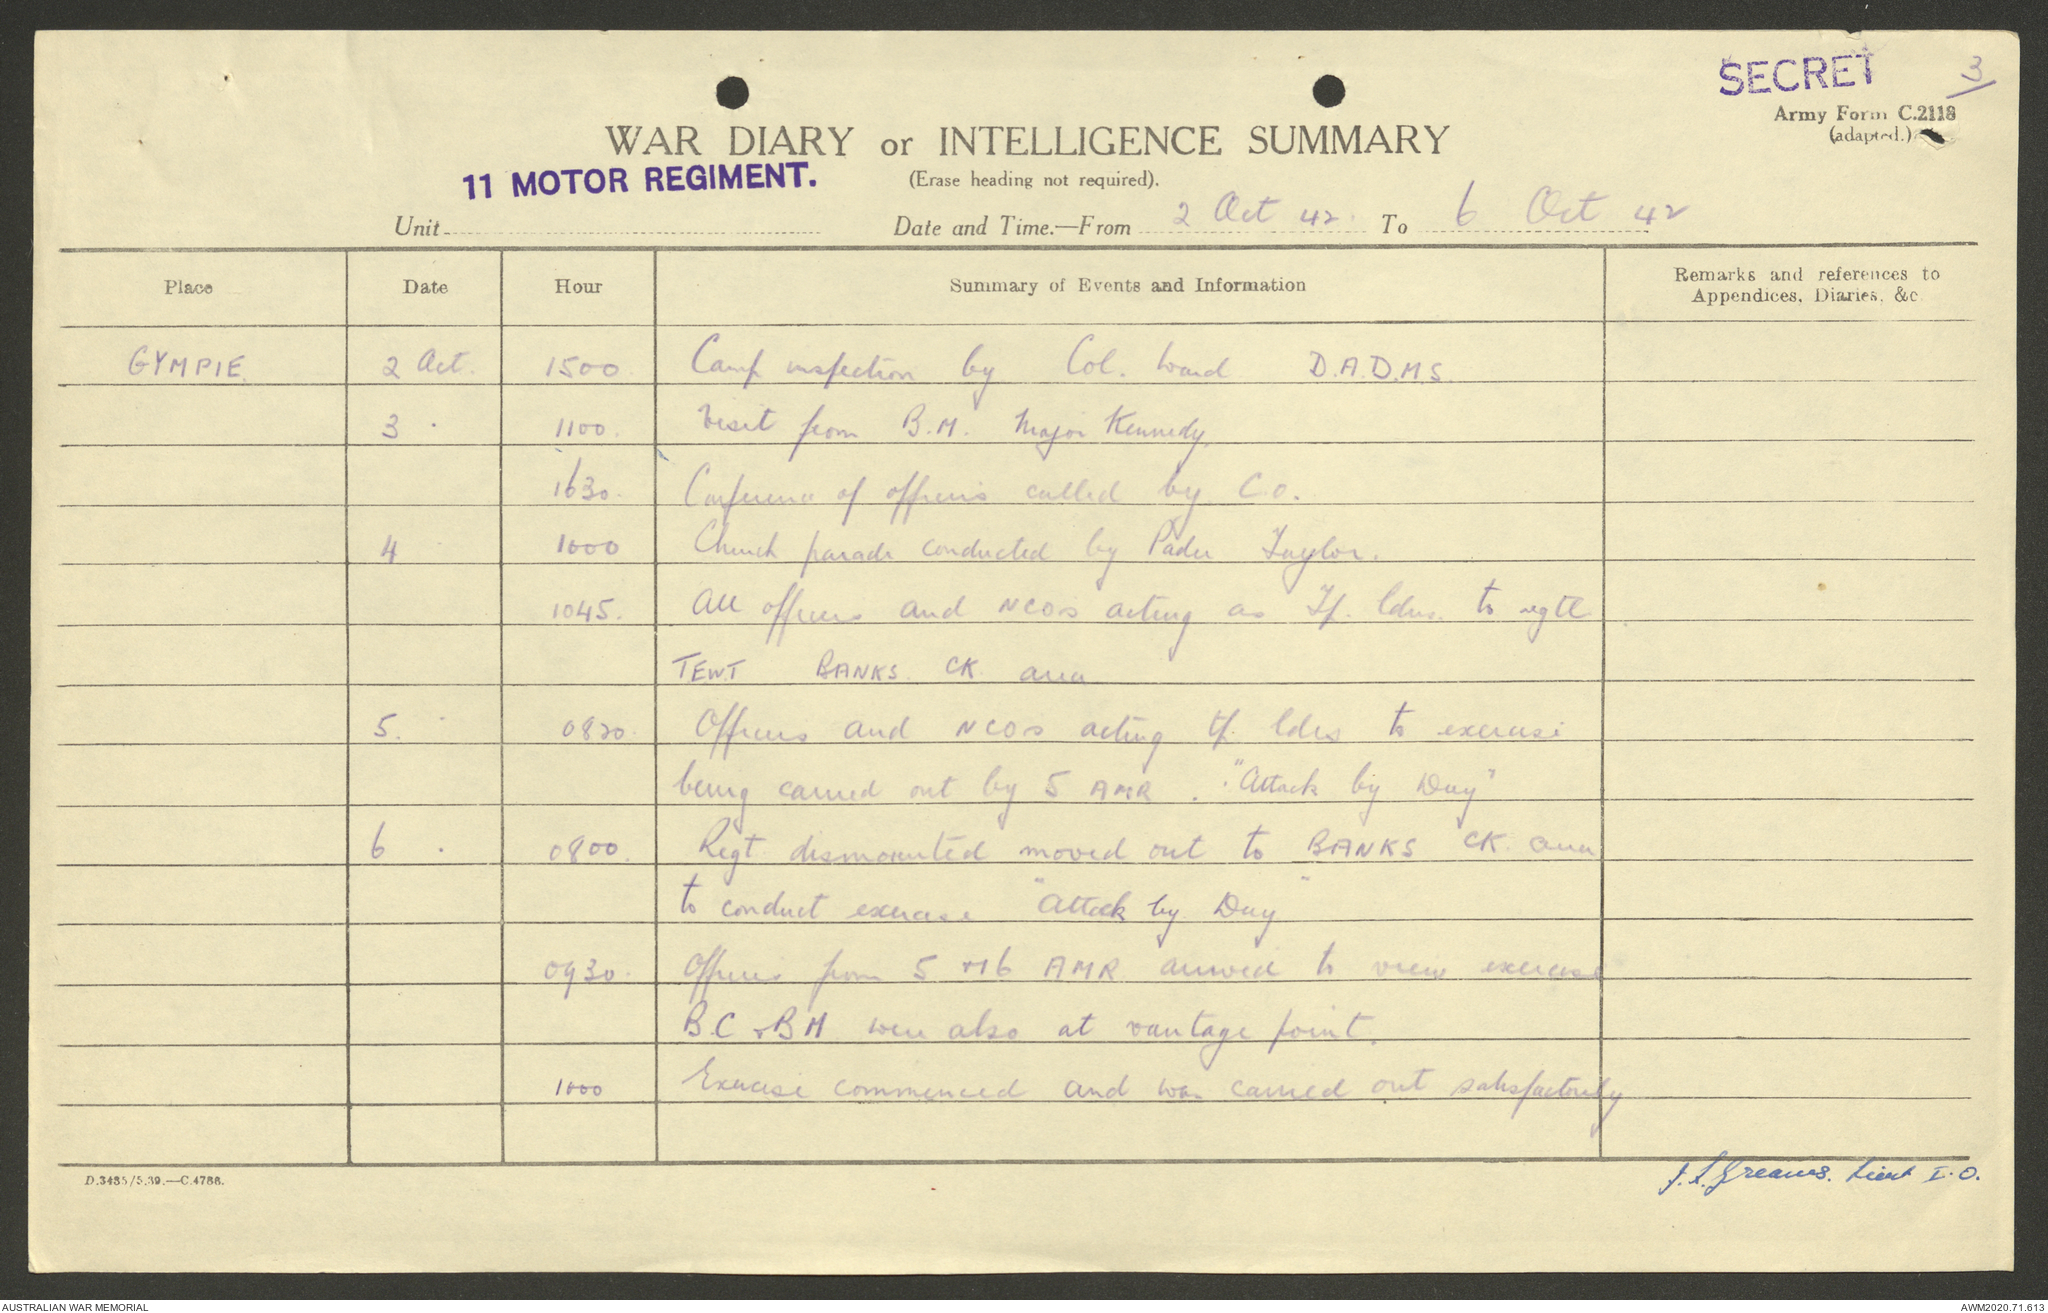 SECRET 3
Army Form C.2118
(adapted.)
WAR DIARY or INTELLIGENCE SUMMARY
11 MOTOR REGIMENT.
(Erase heading not required).
Unit Date and Time.—From 2 Oct 42. To 6 Oct 42
Place Date Hour Summary of Events and Information Remarks and references to Appendices, Diaries, &c.
GYMPIE 2 Oct. 1500 Camp inspection by Col. Ward D.A.D.M.S.
3 1100. Visit from B.M. Major Kennedy.
1630. Conference of officers called by C.O.
4 1000 Church parade conducted by Padre Taylor.
1045. All officers and NCOs acting as Tp. ldrs. to regtl
TEWT BANKS CK. area
5. 0820. Officers and NCOs acting tp. ldrs to exercise
being carried out by 5 AMR. "Attack by Day"
6 0800. Regt. dismounted moved out to BANKS CK. area
to conduct exercise "Attack by Day"
0930. Officers from 5 & 16 AMR arrived to view exercise
B.C & BM were also at vantage point.
1000 Exercise commenced and was carried out satisfactorily
J. S. Greaves. Lieut I.O.
D.3435/5.39.—C.4786.
AUSTRALIAN WAR MEMORIAL AWM2020.71.613